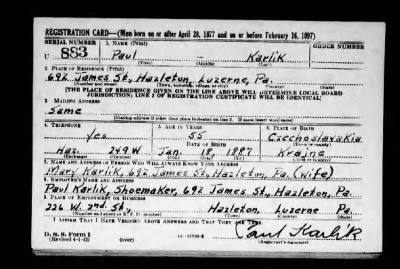 REGISTRATION CARD—(Men born on or after April 28, 1877 and on or before February 16, 1897)
SERIAL NUMBER 1. NAME (Print) ORDER NUMBER
U 883 Paul — Karlik
2. PLACE OF RESIDENCE (Print)
692 James St., Hazleton, Luzerne, Pa.
[THE PLACE OF RESIDENCE GIVEN ON THE LINE ABOVE WILL DETERMINE LOCAL BOARD
JURISDICTION; LINE 2 OF REGISTRATION CERTIFICATE WILL BE IDENTICAL]
3. MAILING ADDRESS
Same
[Mailing address if other than place indicated on line 2. If same insert word same]
4. TELEPHONE 5. AGE IN YEARS 6. PLACE OF BIRTH
Yes 55 Czechoslovakia
DATE OF BIRTH
Haz. 249W Jan. 18, 1887 Krajne
(Exchange) (Number) (Mo.) (Day) (Yr.)
7. NAME AND ADDRESS OF PERSON WHO WILL ALWAYS KNOW YOUR ADDRESS
Mary Karlik, 692 James St., Hazleton, Pa. (Wife)
8. EMPLOYER'S NAME AND ADDRESS
Paul Karlik, Shoemaker, 692 James St., Hazleton, Pa.
9. PLACE OF EMPLOYMENT OR BUSINESS
226 W. 2nd. St., Hazleton, Luzerne Pa.
(Number and street or R. F. D. number) (Town) (County) (State)
I AFFIRM THAT I HAVE VERIFIED ABOVE ANSWERS AND THAT THEY ARE TRUE.
D. S. S. Form 1 Paul Karlik
(Revised 4-1-42) (over) (Registrant's signature)